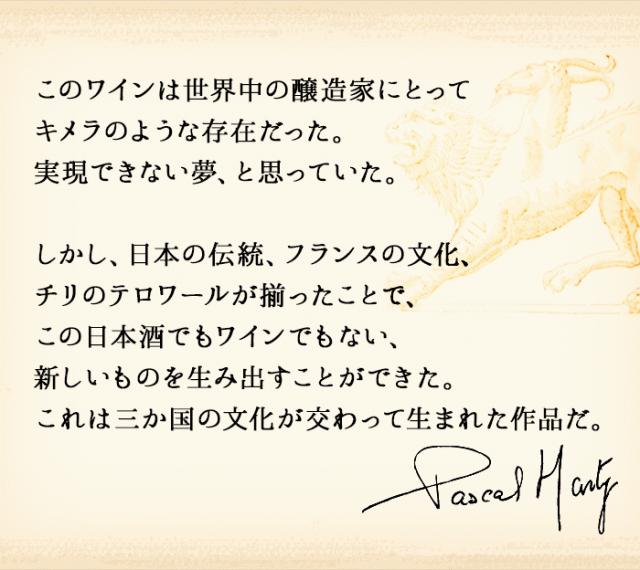 このワインは世界中の醸造家にとって
キメラのような存在だった。
実現できない夢、と思っていた。
しかし、日本の伝統、フランスの文化、
チリのテロワールが揃ったことで、
この日本酒でもワインでもない、
新しいものを生み出すことができた。
これは三か国の文化が交わって生まれた作品だ。
Pascal Marty